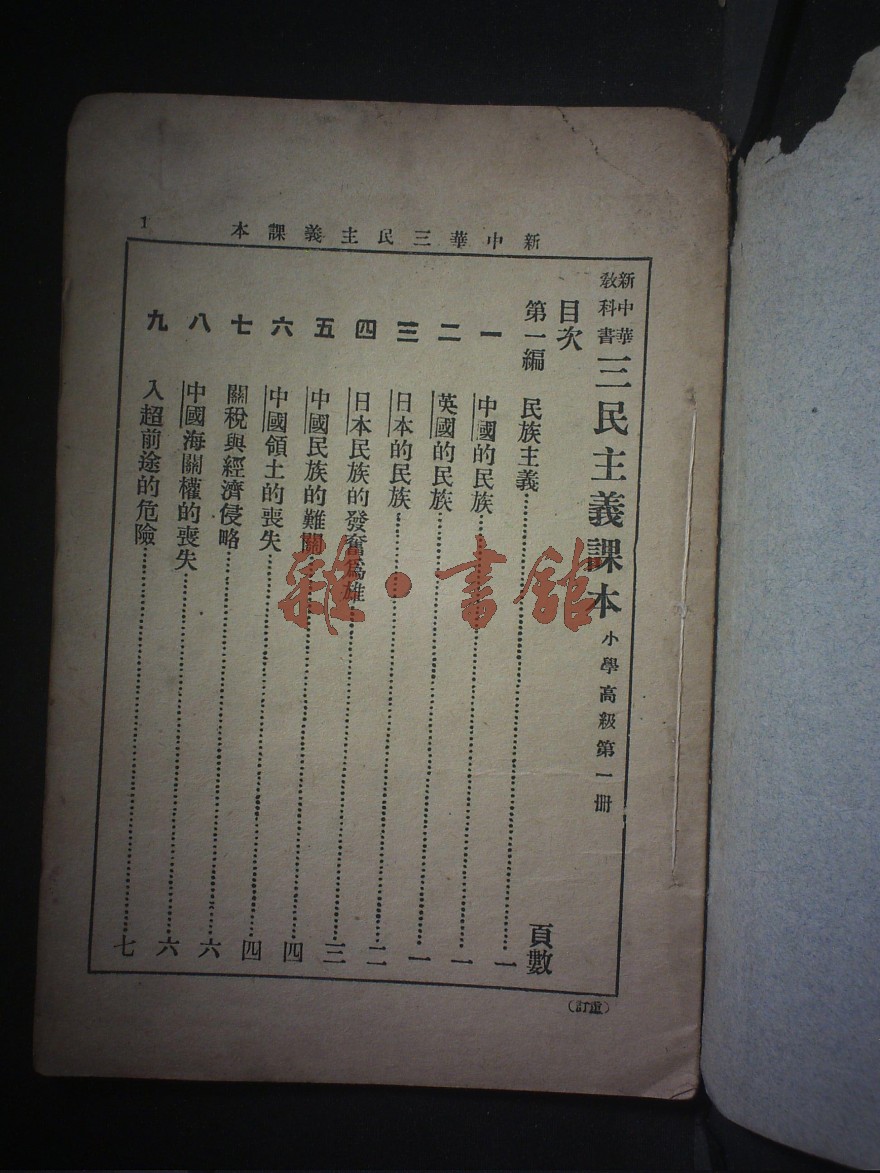 新中華三民主義課本
1
新中華
教科書
三民主義課本 小學高級第一冊
目次 頁數
第一編 民族主義……一
一 中國的民族……一
二 英國的民族……一
三 日本的民族……二
四 日本民族的發奮爲雄……三
五 中國民族的難關……四
六 中國領土的喪失……四
七 關稅與經濟侵略……六
八 中國海關權的喪失……六
九 入超前途的危險……七
(重訂)
雜·書館